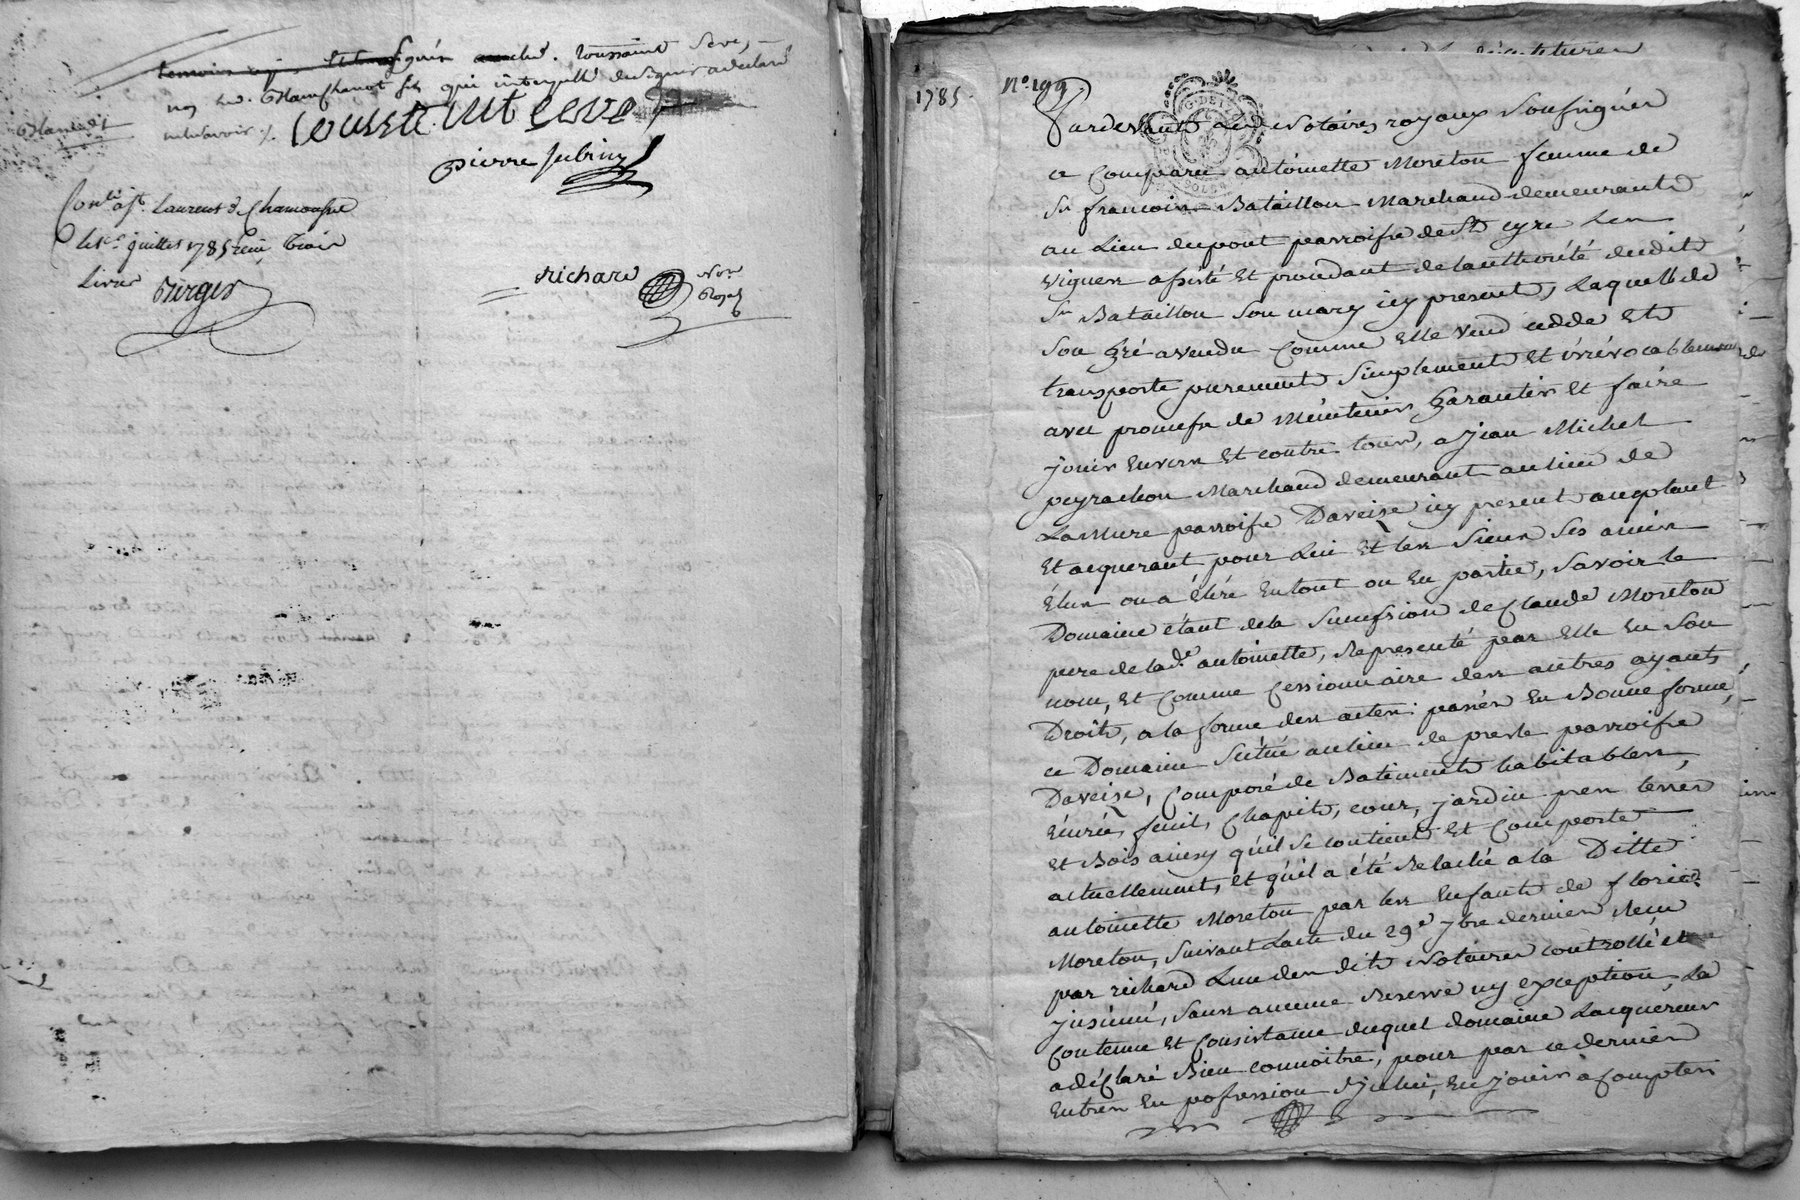 signés Toussaint Seve,
non led. fils qui interpellé de signer a déclaré
ne le savoir ./.
toussaint seve
pierre Jubrin
Conlé a St. Laurens de Chamousset
le juillet 1785 Reçu trois
livres Berger
richard Nore
Royal
1785. No. 199.
Pardevant les Notaires royaux Soussignés
a Comparu antoinette Moreton femme de
Sr francois Bataillon Marchand demeurants
au Lieu dupont parroisse de St cyre Les
vignes assisté Et procédant de lauthorité dudit
Sr Bataillon Son mary icy present, Laquelle de
Son gré avendu Comme Elle vend cedde Et
transporte purement Simplement Et irrévocablement
avec promesse de Méintenir garantir Et faire
jouir Envers Et contre tous, a Jean Michel
peyrachon Marchand demeurant aulieu de
Lamure parroisse Daveize icy present acceptant
Et acquerant pour Lui Et les Siens Ses amis
Elus ou a Eliré Entout ou En partie, Savoir le
Domaine étant dela Sucession de Claude Moreton
pere de lade antoinette, Representé par Elle En Son
nom, Et comme Cessionnaire des autres ayants
Droits, a la forme des actes passés En Bonne forme,
ce Domaine Scitué aulieu de presle parroisse
Daveize, Composé de Batiments habitables,
Ecurie, fenil, Chapit, cour, jardin pres terres
Et Bois ainsy quil Se contient Et Comporte
actuellement, Et quil a été Relaché a la Ditte
antoinette Moreton par les Enfants de florie
Moreton, Suivant Lacte du 29e 7bre dernier Reçu
par richard Lun des dits Notaires controllé et
jnsinué, Sans aucune Reserve ny exception, La
Contenue Et Consistance duquel domaine Lacquéreur
a déclaré Bien connoitre, pour par ce dernier
Entrer En possession djcelui, En jouir à Compter